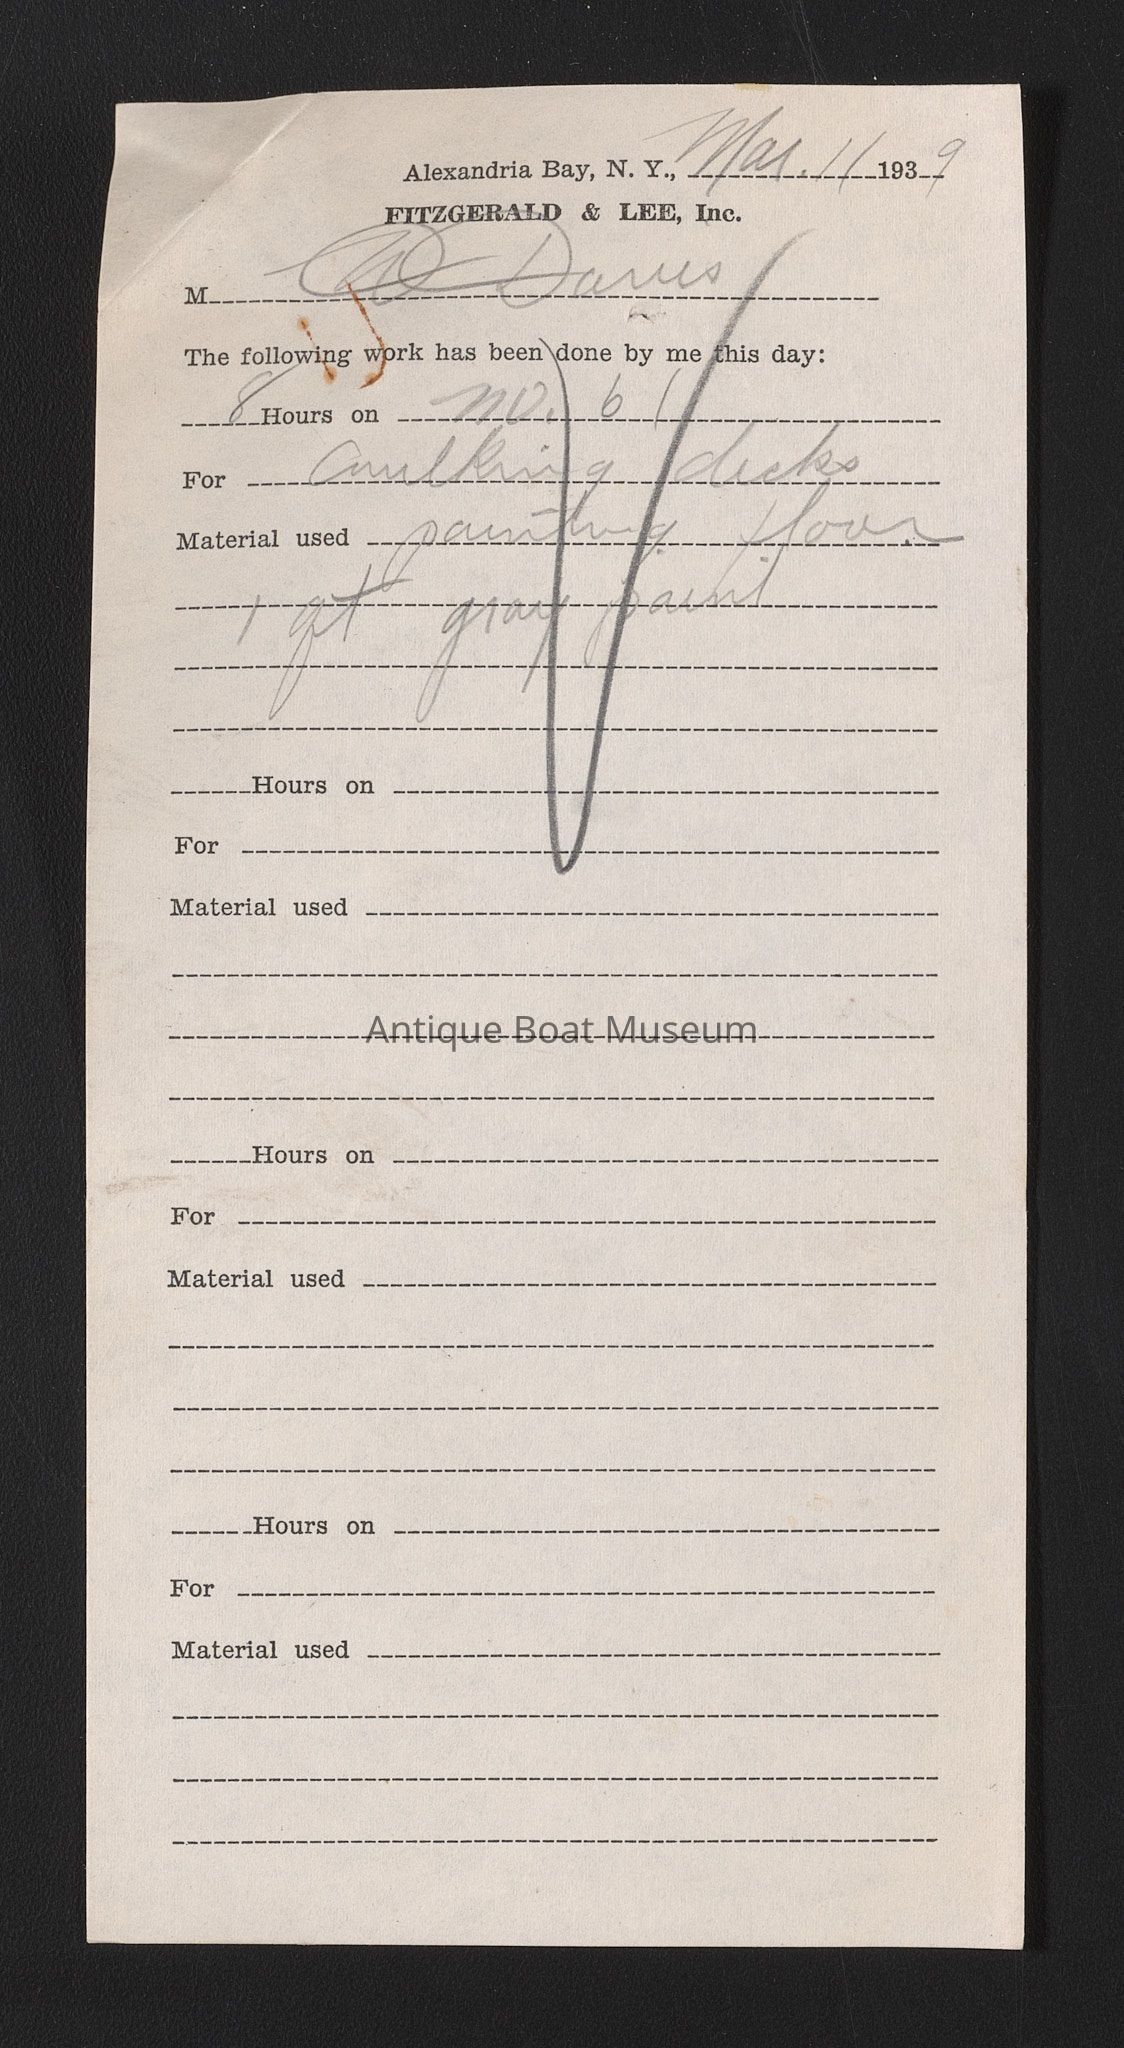 Alexandria Bay, N. Y., Mar. 11 1939
FITZGERALD & LEE, Inc.
M Davis
The following work has been done by me this day:
8 Hours on no. 61
For caulking decks
Material used painting floor
1 qt gray paint
Hours on
For
Material used
Antique Boat Museum
Hours on
For
Material used
Hours on
For
Material used